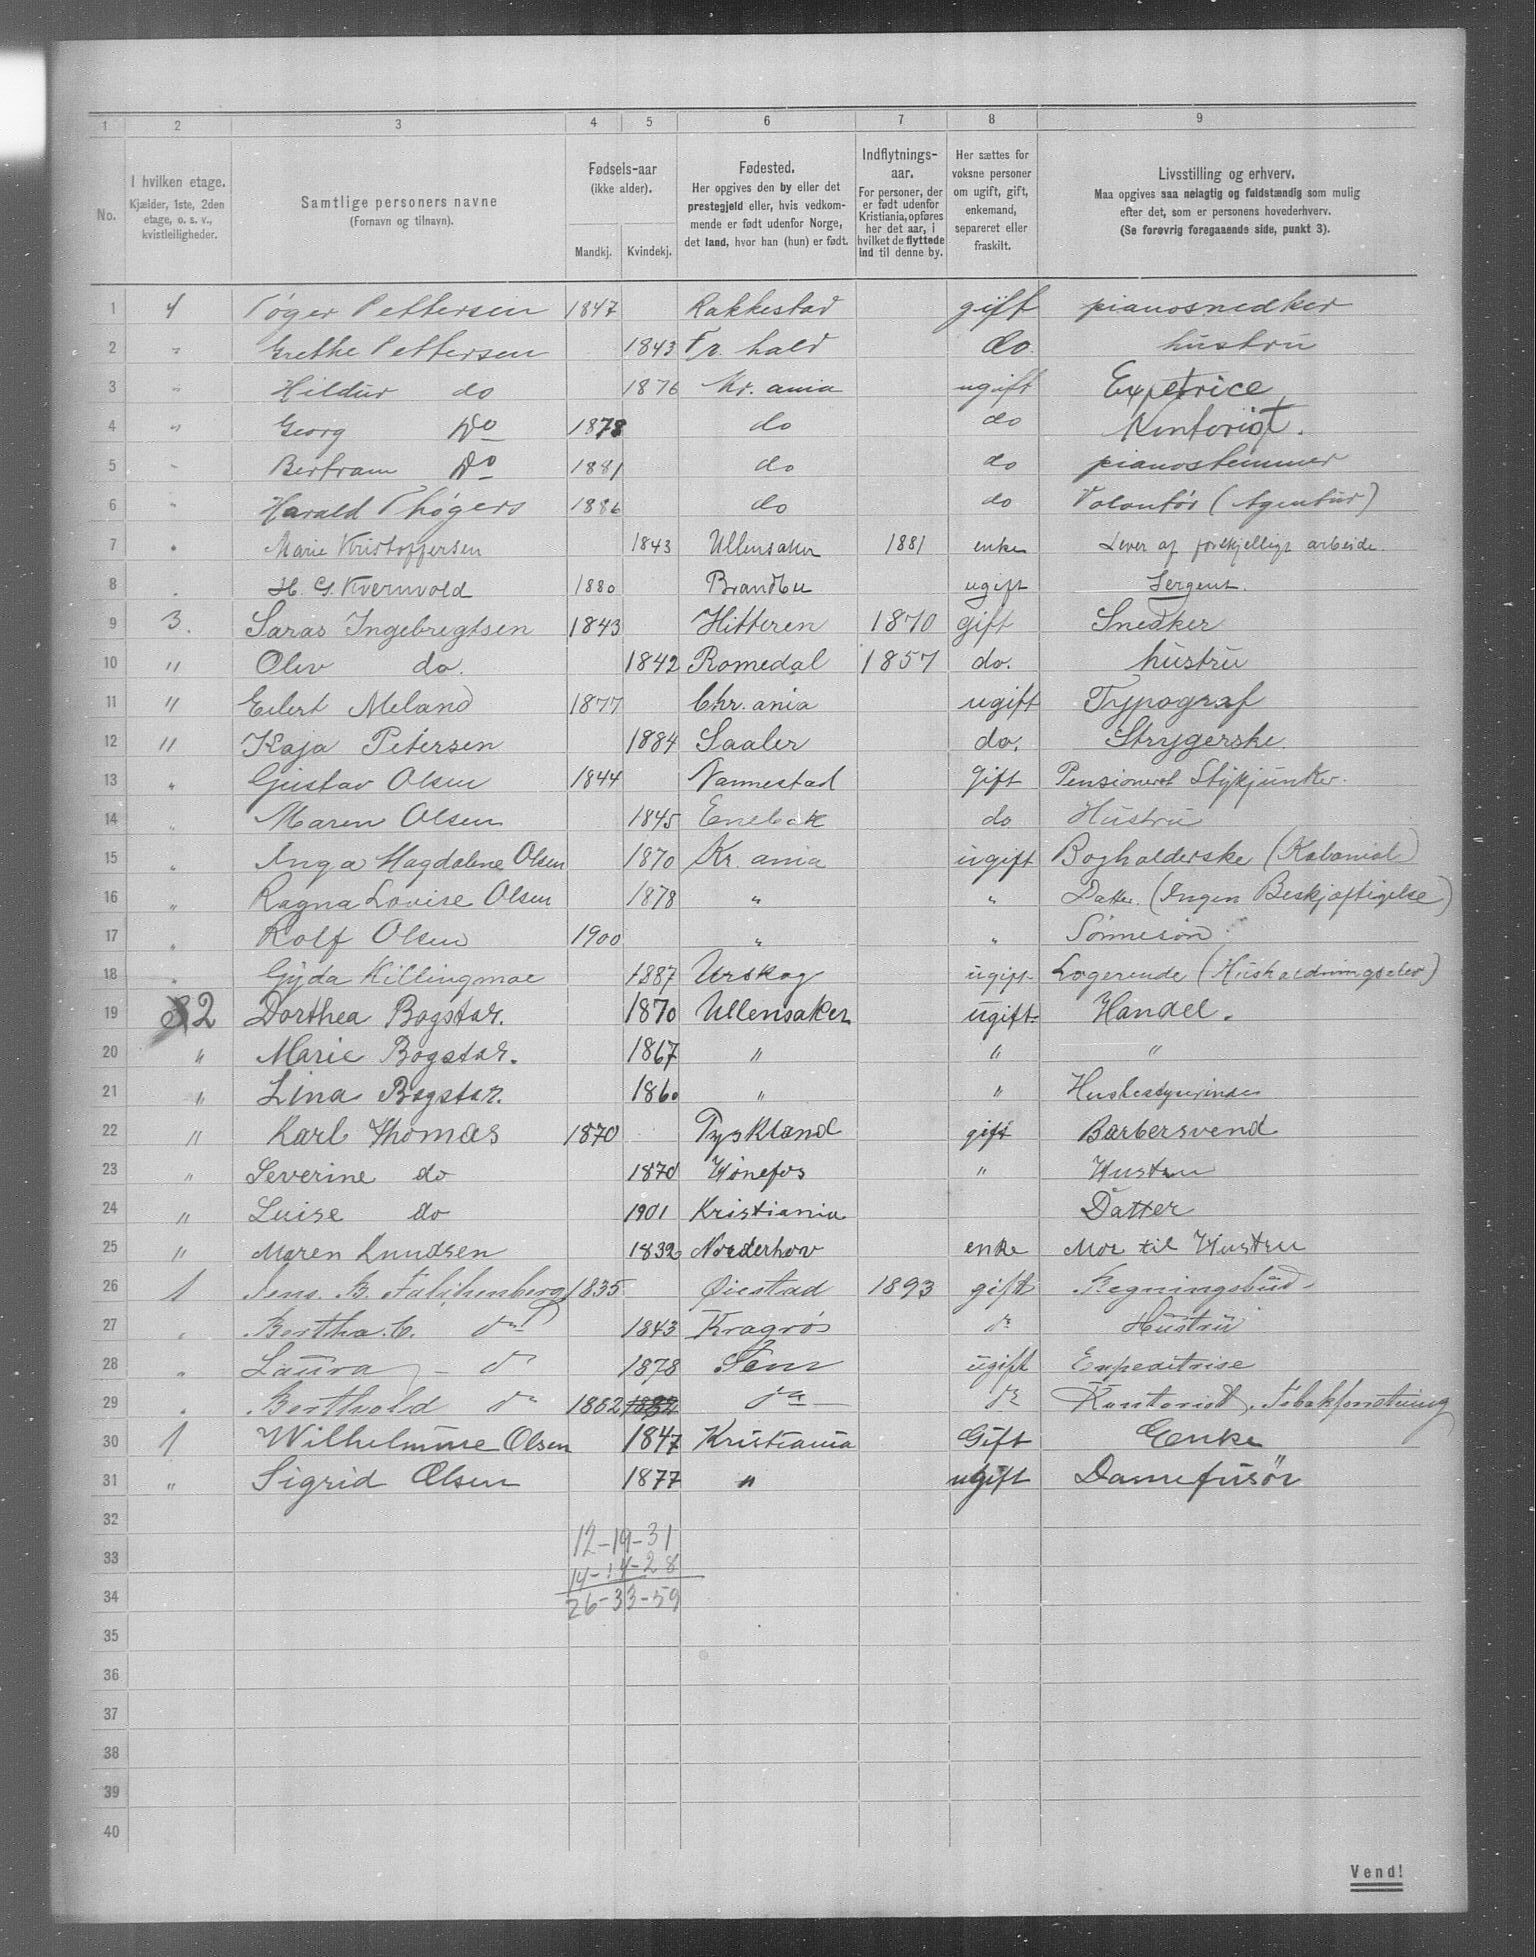 1 2 3 4 5 6 7 8 9
No. I hvilken etage. Kjælder, 1ste, 2den etage, o. s. v., kvistleiligheder. Samtlige personers navne (Fornavn og tilnavn). Fødsels-aar (ikke alder). Mandkj. Kvindekj. Fødested. Her opgives den by eller det prestegjeld eller, hvis vedkommende er født udenfor Norge, det land, hvor han (hun) er født. Indflytnings-aar. For personer, der er født udenfor Kristiania, opføres her det aar, i hvilket de flyttede ind til denne by. Her sættes for voksne personer om ugift, gift, enkemand, separeret eller fraskilt. Livsstilling og erhverv. Maa opgives saa nøiagtig og fuldstændig som mulig efter det, som er personens hovederhverv. (Se forøvrig foregaaende side, punkt 3).
1 4 Tøger Pettersen 1847 Rakkestad gift pianosnedker
2 " Grethe Pettersen 1843 Fr. hald do hustru
3 " Hildur do 1876 Kr. ania ugift Expetrice
4 " Georg Do 1878 do do Kontorist.
5 " Bertram Do 1881 do do pianostemmer
6 " Harald Thøgers 1886 do do Volontør (Agentur)
7 " Marie Kristoffersen 1843 Ullensaker 1881 enke Lever af forskjellige arbeide.
8 " H. G. Kvernvold 1880 Brandbu ugift Sergent.
9 3. Saras Ingebregtsen 1843 Hitteren 1870 gift Snedker
10 " Olev do. 1842 Romedal 1857 do. hustru
11 " Eilert Meland 1877 Chr. ania ugift Typograf
12 " Kaja Petersen 1884 Saaler do. Strygerske.
13 " Gustav Olsen 1844 Nannestad Gift Pensioneret Stykjunker.
14 " Maren Olsen 1845 Enebak do Hustru
15 " Inga Magdalene Olsen 1870 Kr. ania ugift Bogholderske (Kolonial)
16 " Ragna Lovise Olsen 1878 " " Datter. (Ingen Beskjæftigelse)
17 " Rolf Olsen 1900 " " Sønnesøn.
18 " Gyda Killingmoe 1887 Urskog ugift Logerende (Husholdningselev)
19 2 Dorthea Bogstar. 1870 Ullensaker ugift Handel.
20 " Marie Bogstar. 1867 " " "
21 " Lina Bogstar. 1860 " " Husbestyrerinde
22 " Karl Thomas 1870 Tyskland gift Barbersvend
23 " Severine do 1870 Hønefos " Hustru
24 " Luise do 1901 Kristiania Datter
25 " Maren Knudsen 1832 Norderhov enke Mor til Hustru
26 1 Jens. B. Falchenberg 1835 Øiestad 1893 gift Regningsbud
27 " Bertha. C. do 1843 Kragrøs do Hustru
28 " Laura – do 1878 Sem ugift Expeditrise
29 " Berthold do 1862 1882 do do Kontorist.
30 1 Wilhelmine Olsen 1847 Kristiania Gift Enke
31 " Sigrid Olsen 1877 " ugift Damefrisør
32
12-19-31
33
14-14-28
34
26-33-59
35
36
37
38
39
40
Vend!